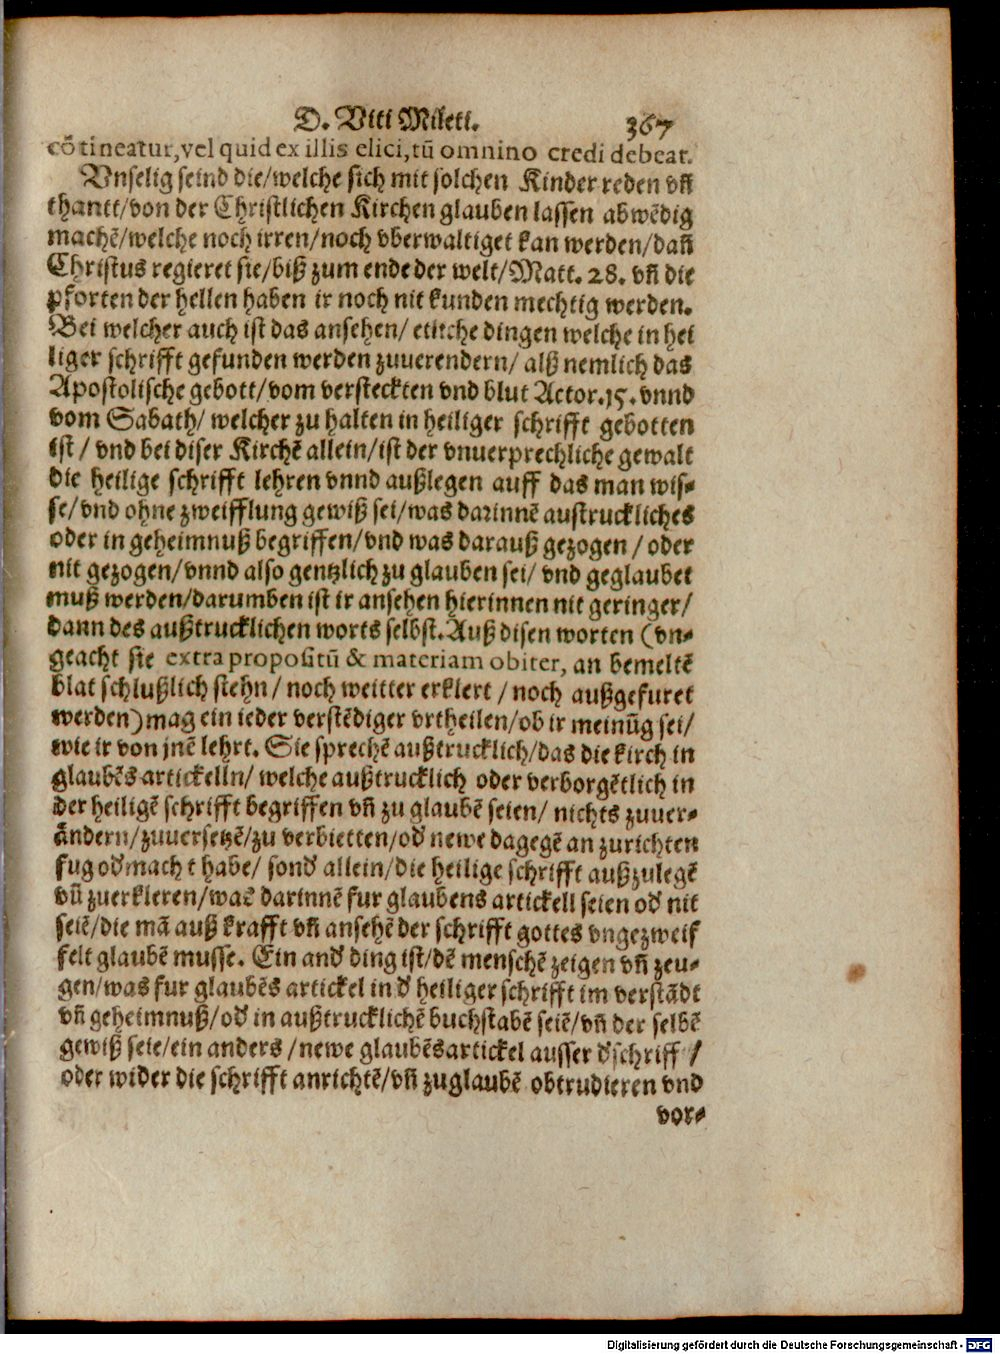 D. Viti Mileti. 367
cõtineatur, vel quid ex illis elici, tũ omnino credi debeat.
Vnselig seind die/welche sich mit solchen Kinder reden vñ
thantt/von der Christlichen Kirchen glauben lassen abwẽdig
machẽ/welche noch irren/noch vberwaltiget kan werden/dañ
Christus regieret sie/biß zum ende der welt/Matt. 28. vñ die
pforten der hellen haben ir noch nit kunden mechtig werden.
Bei welcher auch ist das ansehen/ etliche dingen welche in hei
liger schrifft gefunden werden zuuerendern/ alß nemlich das
Apostolische gebott/vom versteckten vnd blut Actor.15. vnnd
vom Sabath/ welcher zu halten in heiliger schrifft gebotten
ist/ vnd bei diser Kirchẽ allein/ist der vnuerprechliche gewalt
die heilige schrifft lehren vnnd außlegen auff das man wis-
se/vnd ohne zweifflung gewiß sei/was darinnẽ austruckliches
oder in geheimnuß begriffen/vnd was darauß gezogen / oder
nit gezogen/vnnd also gentzlich zu glauben sei/ vnd geglaubet
muß werden/darumben ist ir ansehen hierinnen nit geringer/
dann des außtrucklichen worts selbst. Auß disen worten (vn-
geacht sie extra propositũ & materiam obiter, an bemeltẽ
blat schlußlich stehn/ noch weitter erklert / noch außgefuret
werden) mag ein ieder verstẽdiger vrtheilen/ob ir meinũg sei/
wie ir von jnẽ lehrt. Sie sprechẽ außtrucklich/das die kirch in
glaubẽsartickelln/ welche außtrucklich oder verborgẽtlich in
der heiligẽ schrifft begriffen vñ zu glaubẽ seien/ nichts zuuer-
ändern/zuuersetzẽ/zu verbietten/od newe dagegẽ an zurichten
fug od macht habe/ sond allein/die heilige schrifft außzulegẽ
vñ zuerkleren/was darinnẽ fur glaubens artickell seien od nit
seiẽ/die mã auß krafft vñ ansehẽ der schrifft gottes vngezweif
felt glaubẽ musse. Ein and ding ist/dẽ menschẽ zeigen vñ zeu-
gen/was fur glaubẽs artickel in d heiliger schrifft im verstãdt
vñ geheimnuß/od in außtrucklichẽ buchstabẽ seiẽ/vñ der selbẽ
gewiß seie/ein anders /newe glaubẽsartickel ausser d schriff /
oder wider die schrifft anrichtẽ/vñ zuglaubẽ obtrudieren vnd
vor-
Digitalisierung gefördert durch die Deutsche Forschungsgemeinschaft - DFG